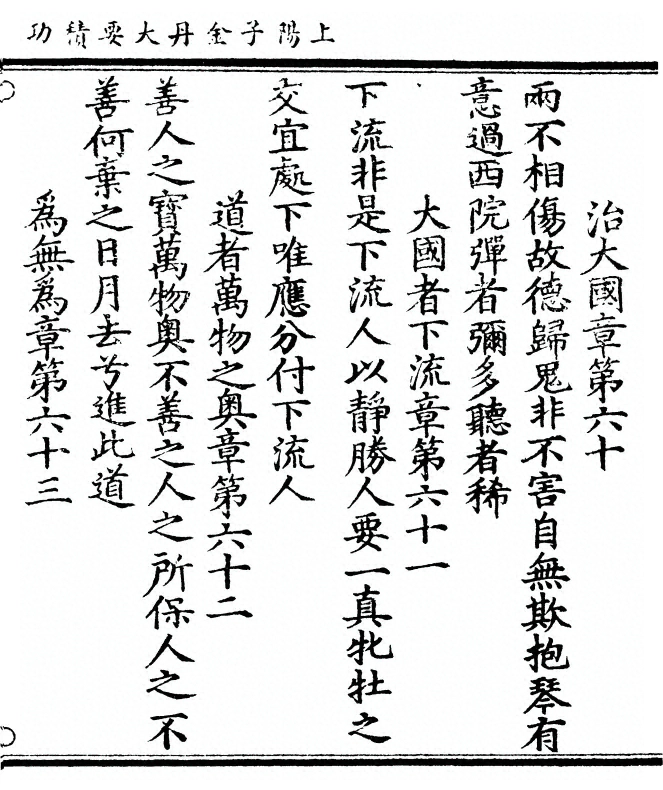 上陽子金丹大要積功
治大國章第六十
兩不相傷故德歸鬼非不害自無欺抱琴有
意過西院彈者彌多聽者稀
大國者下流章第六十一
下流非是下流人以靜勝人要一真牝牡之
交宜處下唯應分付下流人
道者萬物之奥章第六十二
善人之寶萬物奥不善之人之所保人之不
善何棄之日月去兮進此道
爲無爲章第六十三